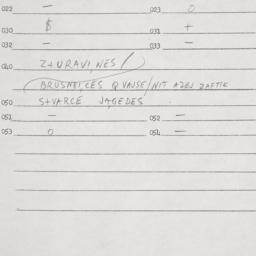 022 — 023 O
030 $ 031 +
032 — 033 —
040 Z+URAVI,NES /
BRUSNTI,CES Q VAISE/NIT AZEJ ZAFTIK
050 S+VARCE JAGEDES
051 — 052 —
053 O 054 —